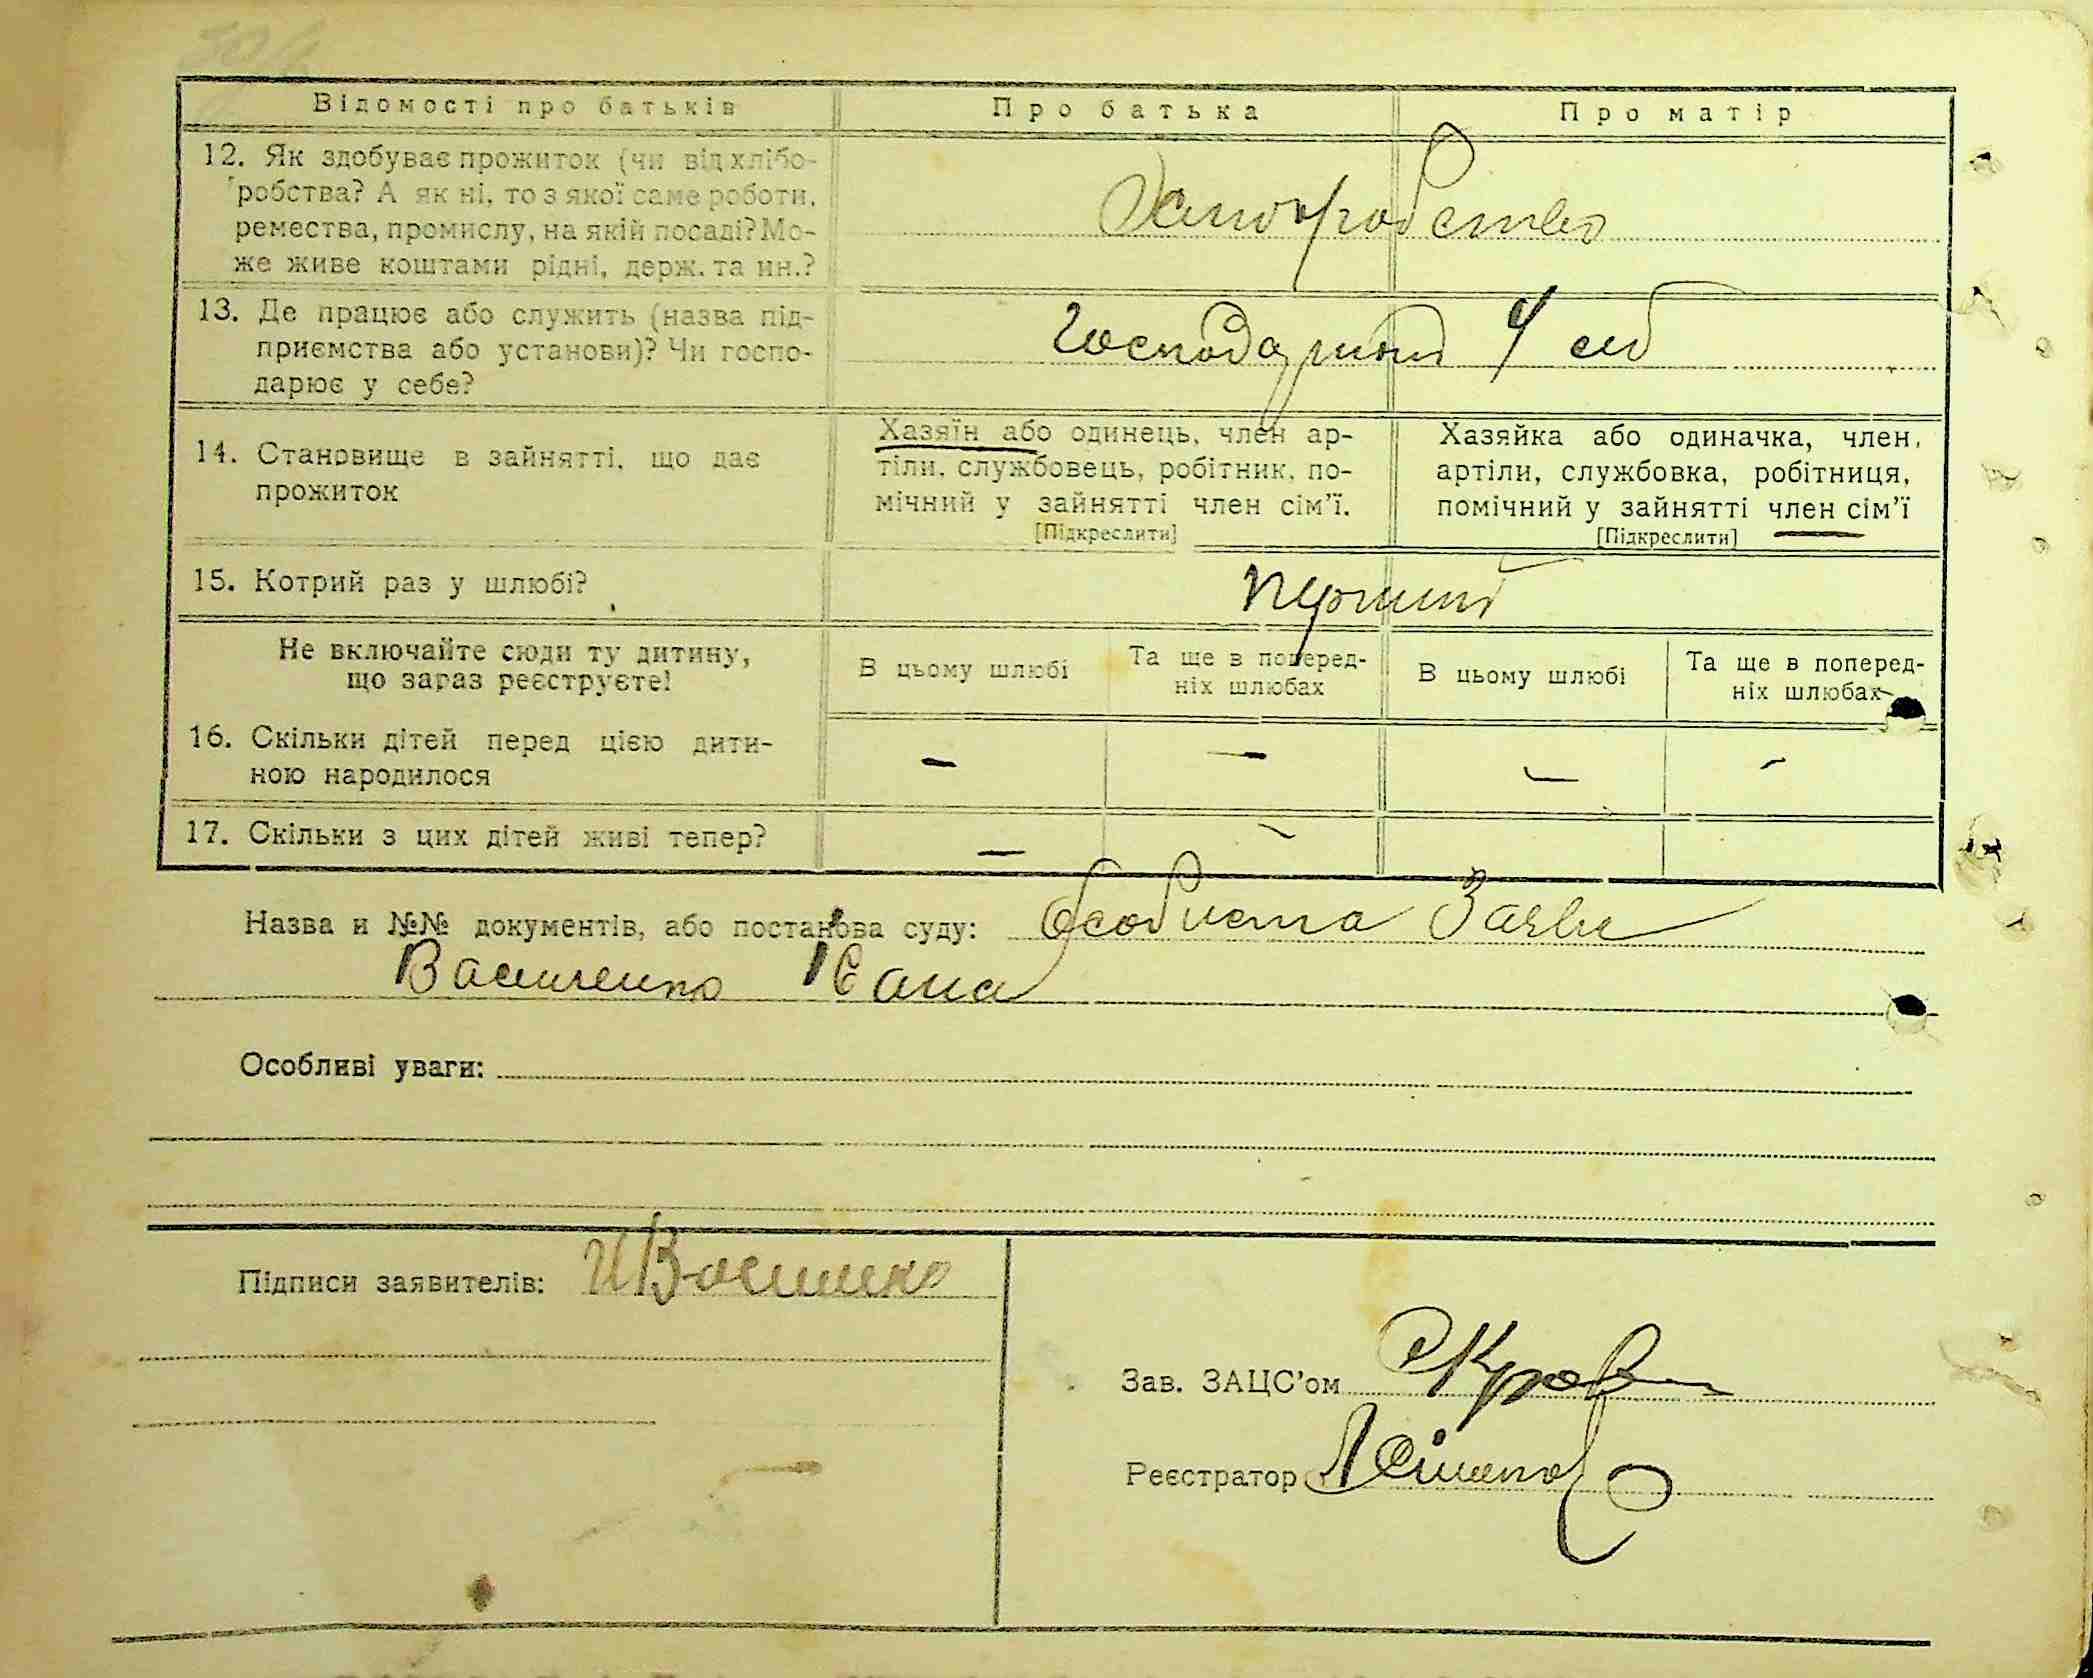 Відомості про батьків Про батька Про матір
12. Як здобуває прожиток (чи від хлібо-
робства? А як ні, то з якої саме роботи,
ремества, промислу, на якій посаді? Мо-
же живе коштами рідні, держ. та ин.?
13. Де працює або служить (назва під-
приємства або установи)? Чи госпо-
дарює у себе?
14. Становище в зайнятті, що дає
прожиток
Хазяїн або одинець, член ар-
тіли, службовець, робітник, по-
мічний у зайнятті член сім'ї.
[Підкреслити]
Хазяйка або одиначка, член,
артіли, службовка, робітниця,
помічний у зайнятті член сім'ї
[Підкреслити]
15. Котрий раз у шлюбі? перший
Не включайте сюди ту дитину,
що зараз реєструєте!
В цьому шлюбі
Та ще в поперед-
ніх шлюбах
В цьому шлюбі
Та ще в поперед-
ніх шлюбах
16. Скільки дітей перед цією дити-
ною народилося
- - - -
17. Скільки з цих дітей живі тепер?
- -
Назва и №№ документів, або постанова суду: Особиста Заява
Особливі уваги:
Підписи заявителів:
Зав. ЗАЦС'ом
Реєстратор